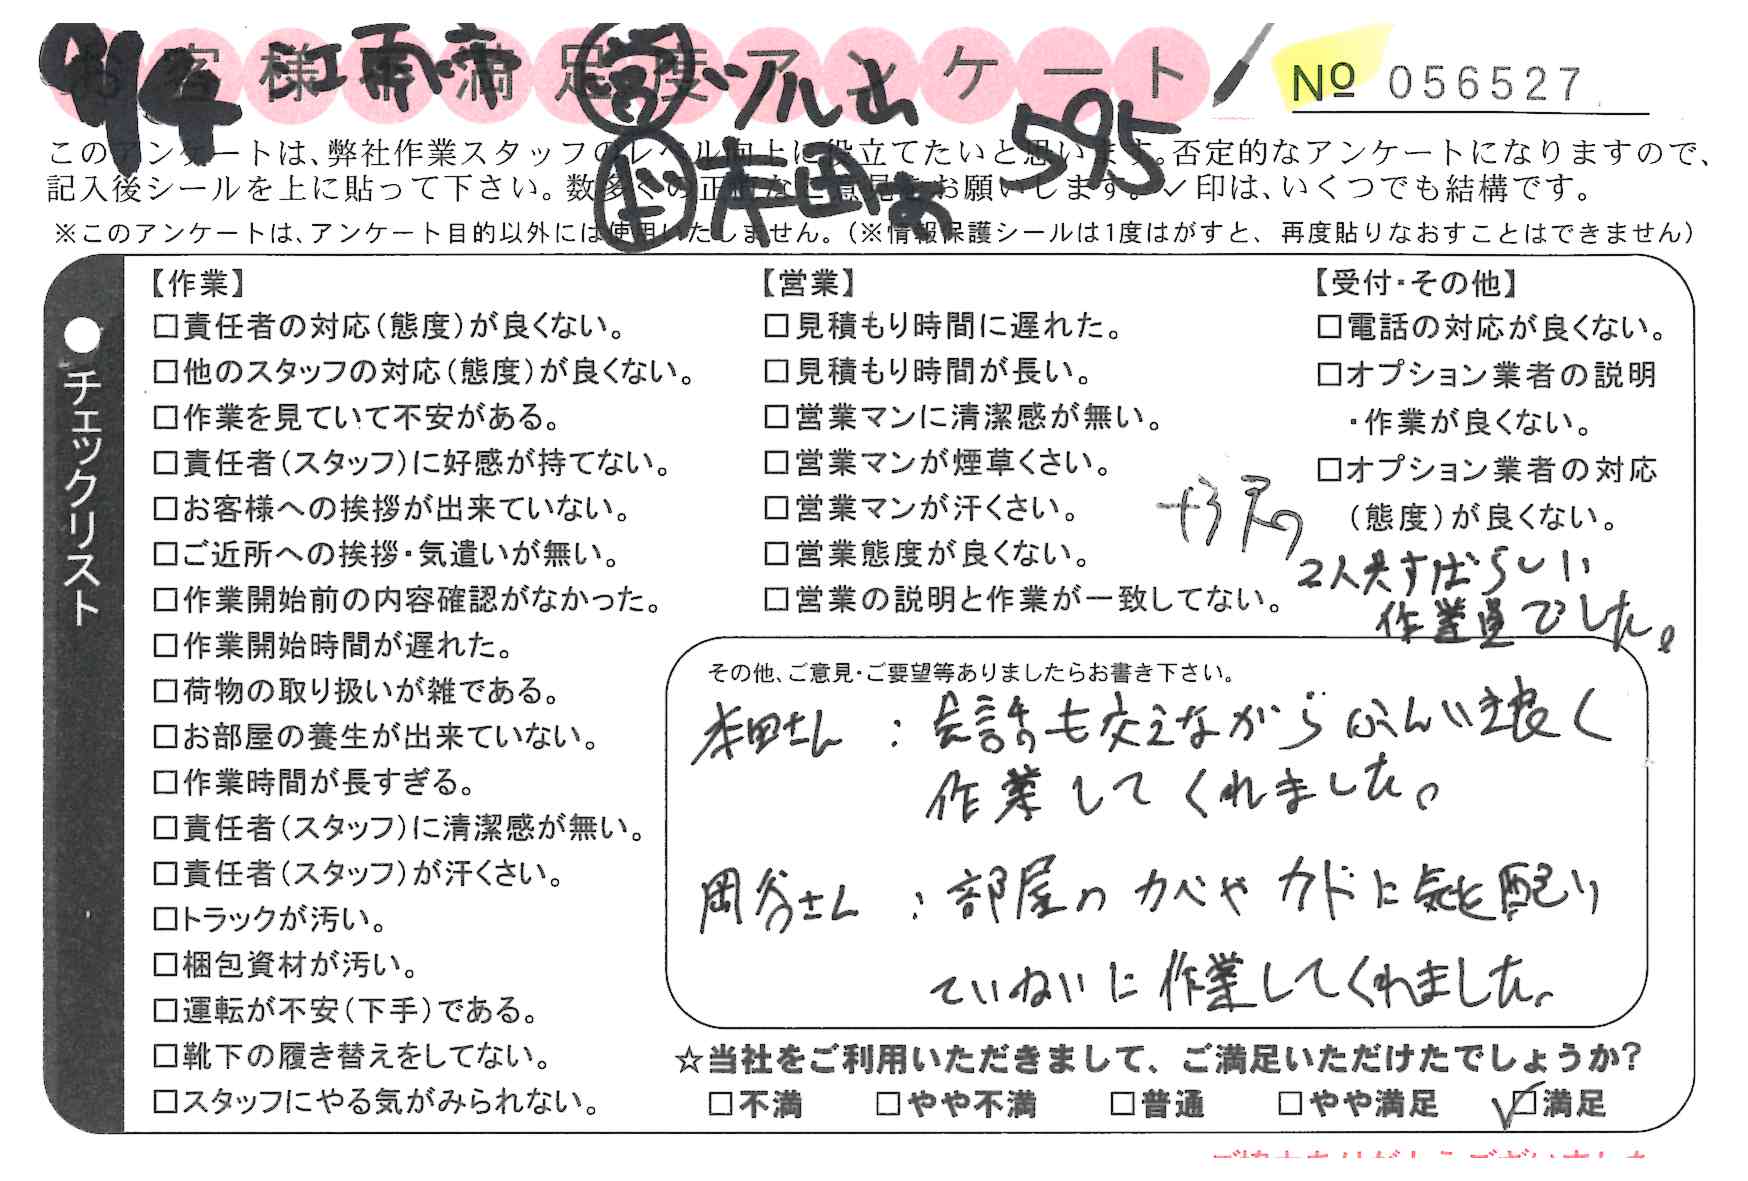 お客様不満足度アンケート
No 056527
914 江雨帝 営 ツル山 595
上 本田
このアンケートは、弊社作業スタッフのレベル向上に役立てたいと思います。否定的なアンケートになりますので、
記入後シールを上に貼って下さい。数多くの正直なご意見をお願いします。✓印は、いくつでも結構です。
※このアンケートは、アンケート目的以外には使用いたしません。（※情報保護シールは1度はがすと、再度貼りなおすことはできません）
●チェックリスト
【作業】
□責任者の対応（態度）が良くない。
□他のスタッフの対応（態度）が良くない。
□作業を見ていて不安がある。
□責任者（スタッフ）に好感が持てない。
□お客様への挨拶が出来ていない。
□ご近所への挨拶・気遣いが無い。
□作業開始前の内容確認がなかった。
□作業開始時間が遅れた。
□荷物の取り扱いが雑である。
□お部屋の養生が出来ていない。
□作業時間が長すぎる。
□責任者（スタッフ）に清潔感が無い。
□責任者（スタッフ）が汗くさい。
□トラックが汚い。
□梱包資材が汚い。
□運転が不安（下手）である。
□靴下の履き替えをしてない。
□スタッフにやる気がみられない。
【営業】
□見積もり時間に遅れた。
□見積もり時間が長い。
□営業マンに清潔感が無い。
□営業マンが煙草くさい。
□営業マンが汗くさい。
□営業態度が良くない。
□営業の説明と作業が一致してない。
【受付・その他】
□電話の対応が良くない。
□オプション業者の説明
・作業が良くない。
□オプション業者の対応
（態度）が良くない。
2人共すばらしい
作業員でした。
その他、ご意見・ご要望等ありましたらお書き下さい。
本田さん : 会話も交えながらふんいき良く
作業してくれました。
岡谷さん : 部屋のカベやカドに気を配り
ていねいに作業してくれました。
☆当社をご利用いただきまして、ご満足いただけたでしょうか?
□不満 □やや不満 □普通 □やや満足 ☑満足